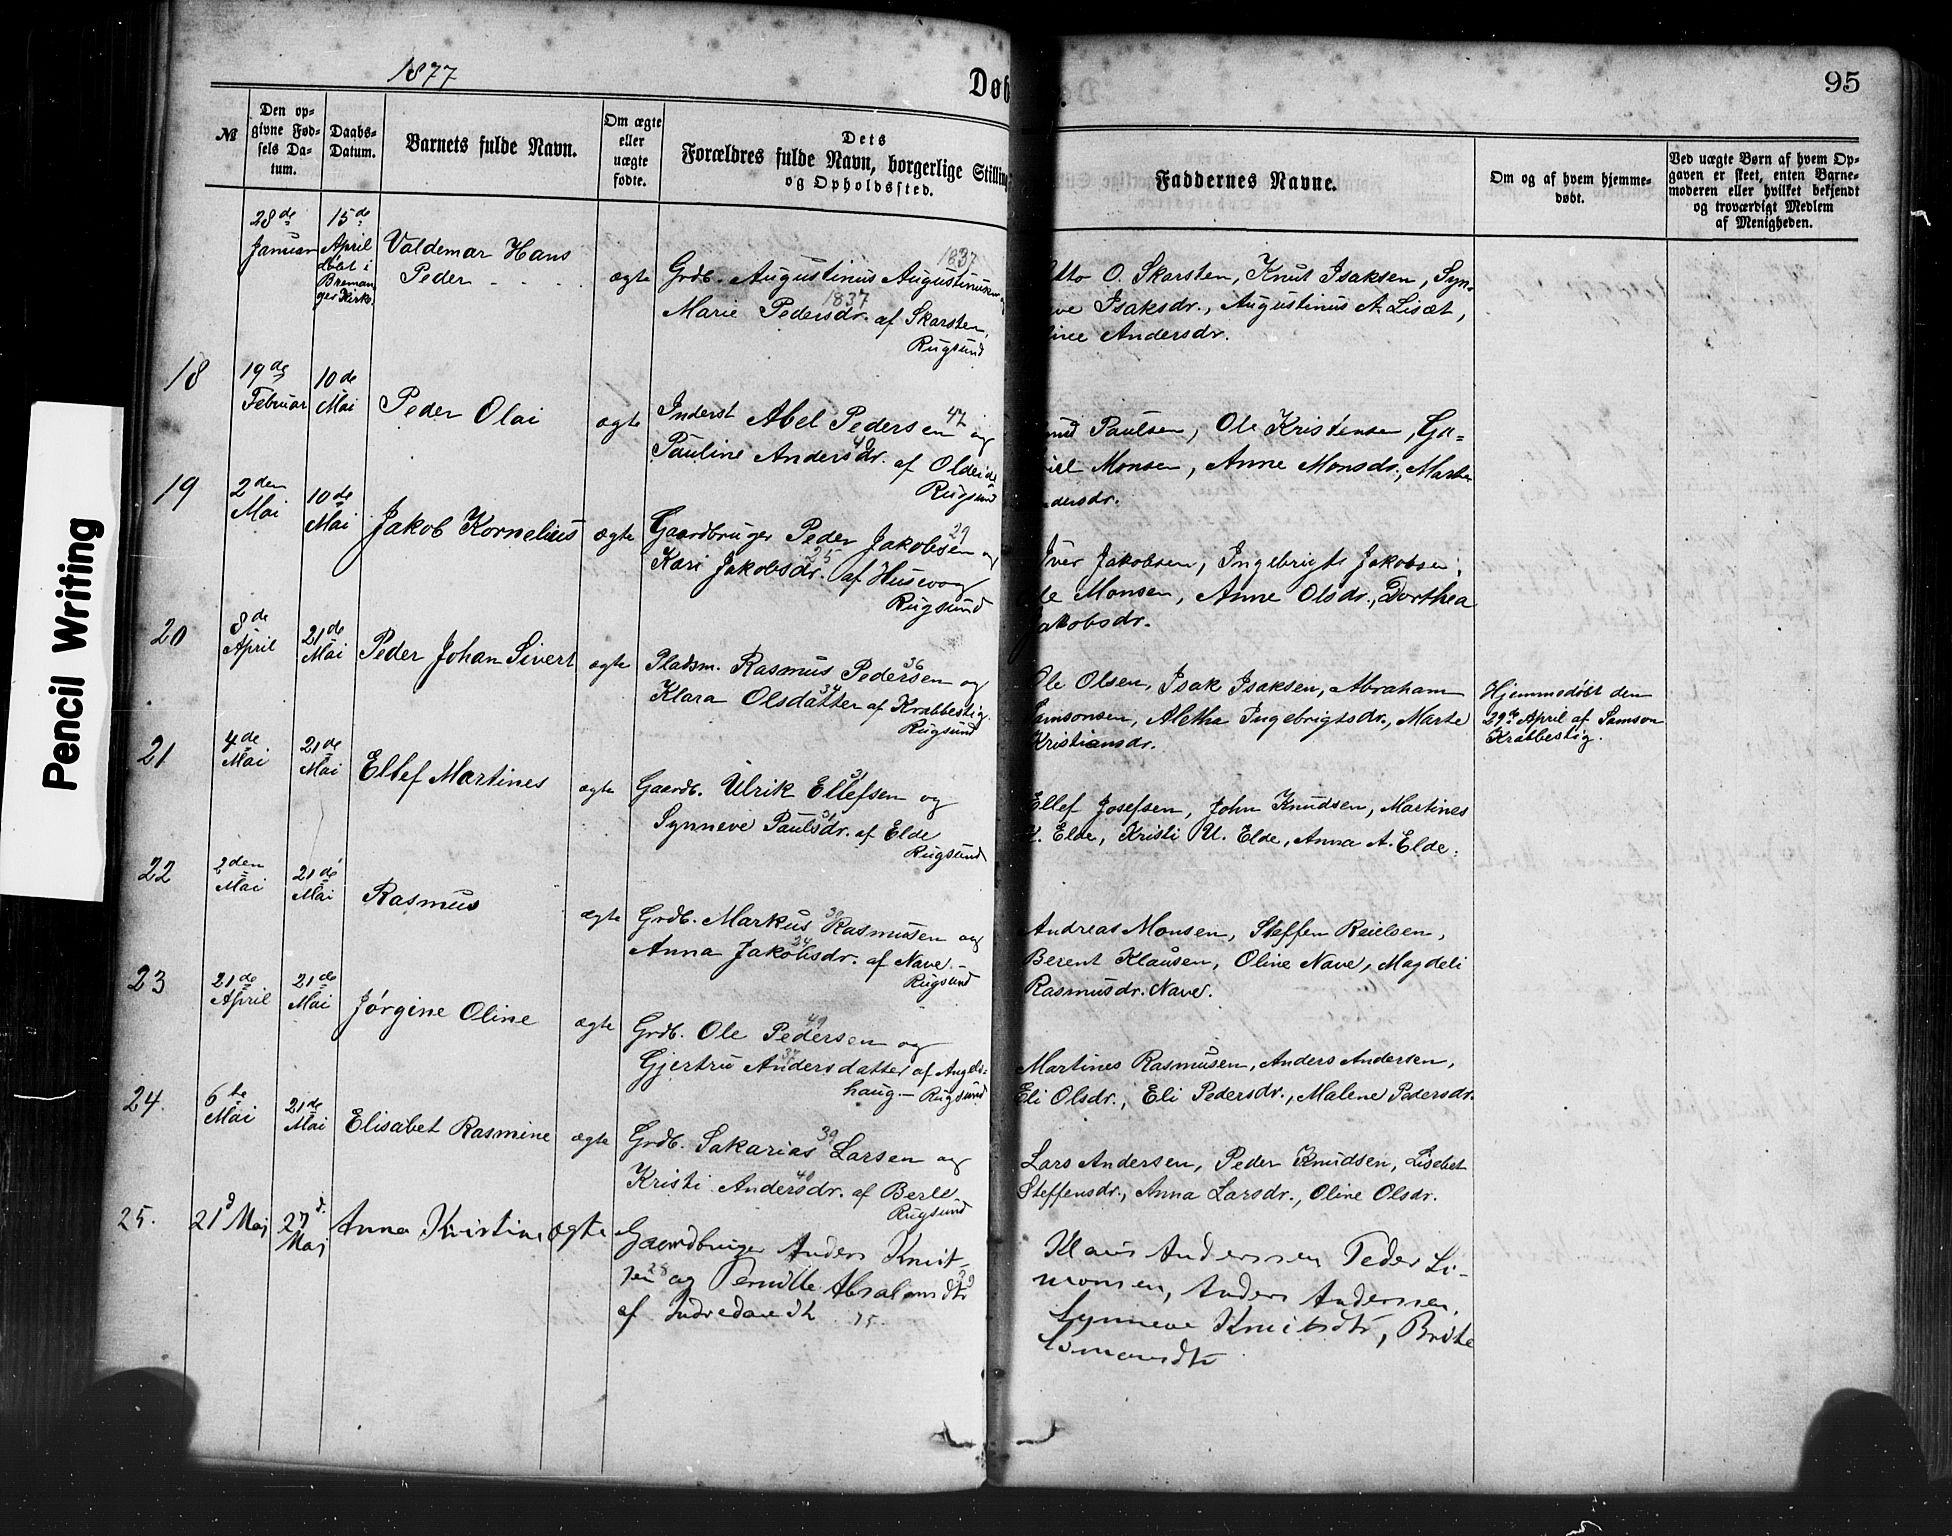 1877
Døb
95
№
Den opgivne Fødsels Datum.
Daabs-Datum.
Barnets fulde Navn.
Om ægte eller uægte fødte.
Dets Forældres fulde Navn, borgerlige Stilling og Opholdssted.
Faddernes Navne.
Om og af hvem hjemmedøbt.
Ved uægte Børn af hvem Opgaven er skeet, enten Barnemoderen eller hvilket bekjendt og troværdigt Medlem af Menigheden.
28de Januar
15de April døbt i Bremanger Kirke
Valdemar Hans
Peder
ægte
1837
Grdb. Augustinus Augustinusen og
1837
Marie Pedersdr. af Skarsten,
Rugsund
Otto O. Skarsten, Knut Isaksen, Syn-
ve Isaksdr., Augustinus A. Lisæt,
ine Andersdr.
18
19de Februar
10de Mai
Peder Olai
ægte
Inderst Abel Pedersen 47 og
Pauline Andersdr. 40 af Oldeide
Rugsund
mund Paulsen, Ole Kristensen, Ga-
riel Monsen, Anne Monsdr., Marthe
ndersdr.
19
2den Mai
10de Mai
Jakob Kornelius
ægte
Gaardbruger Peder Jakobsen 29 og
Kari Jakobsdr. 25 af Husevog
Rugsund
Iver Jakobsen, Ingebrigt Jakobsen,
Ole Monsen, Anne Olsdr., Dorthea
Jakobsdr.
20
8de April
21de Mai
Peder Johan Sivert
ægte
Pladsm. Rasmus Pedersen 36 og
Klara Olsdatter 34 af Krabbestig
Rugsund
Ole Olsen, Isak Isaksen, Abraham
Samsonsen, Aletha Ingebrigtsdr., Marte
Kristiansdr.
Hjemmedøbt den
29de April af Samson
Krabbestig.
21
4de Mai
21de Mai
Ellef Martines
ægte
Gaardb. Ulrik Ellefsen 31 og
Synneve Paulsdr. 31 af Elde
Rugsund
Ellef Josefsen, John Knudsen, Martines
K. Elde, Kristi U. Elde, Anna A. Elde.
22
2den Mai
21de Mai
Rasmus
ægte
Grdb. Markus Rasmusen 38 og
Anna Jakobsdr. 24 af Nave.
Rugsund
Andreas Monsen, Steffen Reielsen,
Berent Klausen, Oline Nave, Magdeli
Rasmusdr. Nave.
23
21de April
21de Mai
Jørgine Oline
ægte
Grdb. Ole Pedersen 49 og
Gjertru Andersdatter 37 af Angels-
haug - Rugsund
Martines Rasmusen, Anders Andersen,
Eli Olsdr., Eli Pedersdr., Malene Pedersdr.
24.
6te Mai
21de Mai
Elisabet Rasmine
ægte
Grdb. Sakarias Larsen 39 og
Kristi Andersdr. 40 af Berle
Rugsund
Lars Andersen, Peder Knudsen, Lisebet
Steffensdr., Anna Larsdr., Oline Olsdr.
25.
21d Maj
27d. Maj
Anna Kristine
ægte
Gaardbruger Anders Knut-
sen 28 og Pernille Absalonsdtr 29
af Indredavik
Klaus Anderssen Peder Si-
monsen, Anders Anderssen,
Synneve Knutsdtr, Brithe
Simonsdtr
Pencil Writing